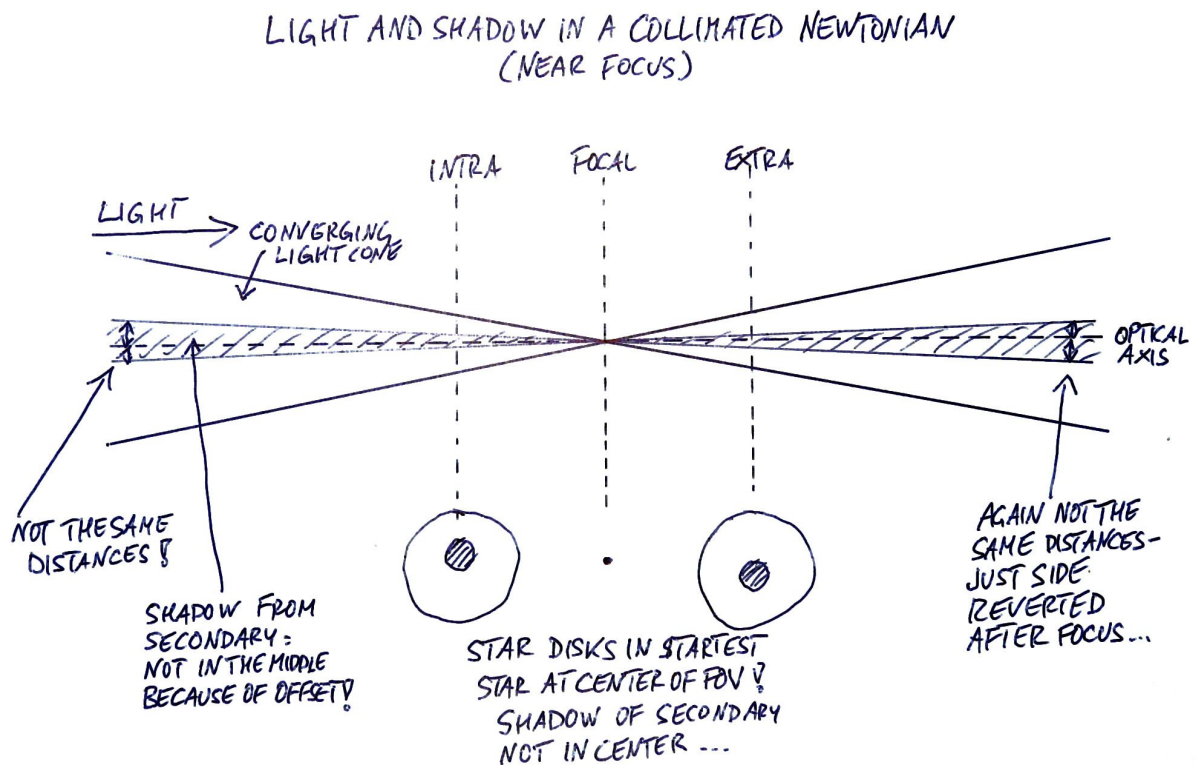 LIGHT AND SHADOW IN A COLLIMATED NEWTONIAN
(NEAR FOCUS)
INTRA
FOCAL
EXTRA
LIGHT
CONVERGING
LIGHT CONE
OPTICAL
AXIS
NOT THE SAME
DISTANCES!
SHADOW FROM
SECONDARY:
NOT IN THE MIDDLE
BECAUSE OF OFFSET!
STAR DISKS IN STARTEST
STAR AT CENTER OF FOV!
SHADOW OF SECONDARY
NOT IN CENTER ...
AGAIN NOT THE
SAME DISTANCES-
JUST SIDE
REVERTED
AFTER FOCUS...